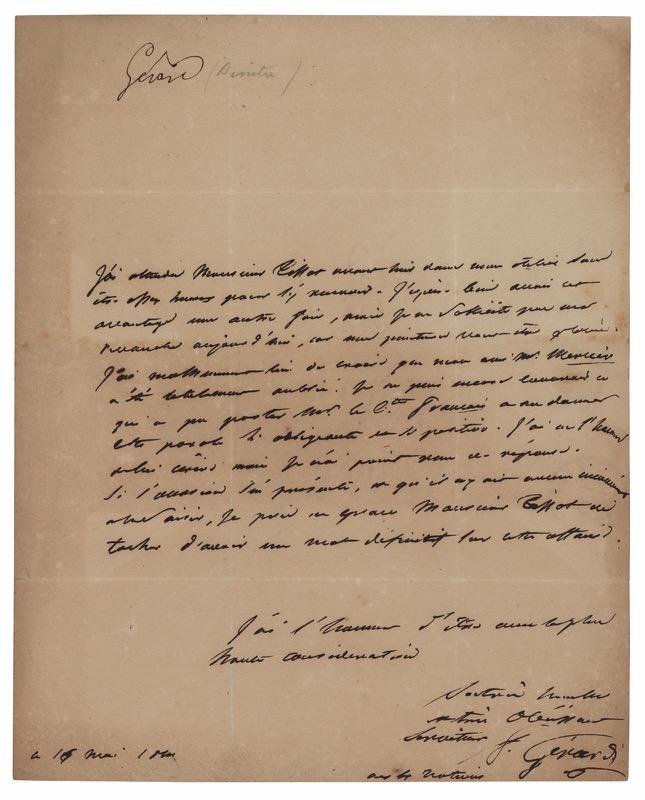 Gérard (Peintre)
J'ai attendu Monsieur Tissot avant hier dans mon atelier
assez heureux pour l'y recevoir. J'espère bien avoir cet
avantage une autre fois, mais je ne
revanche aujourd'hui, car
J'ai malheureusement lieu de croire que mon ami Mr. Mercier
a été totalement oublié. Je ne puis encore concevoir ce
qui a pu porter Mr. le Cte Français a me donner
cette parole si obligeante et si positive. J'ai eu l'honneur
de lui écrire mais je n'ai point reçu de réponse.
Si l'occasion s'en présente, et qu'il n'y ait aucun inconvénient
a la saisir, je prie en grace Monsieur Tissot de
tacher d'avoir un mot définitif sur cette affaire.
J'ai l'honneur d'être avec la plus
haute consideration
Son très humble
et très obéissant
Serviteur F. Gérard
ce 15 mai